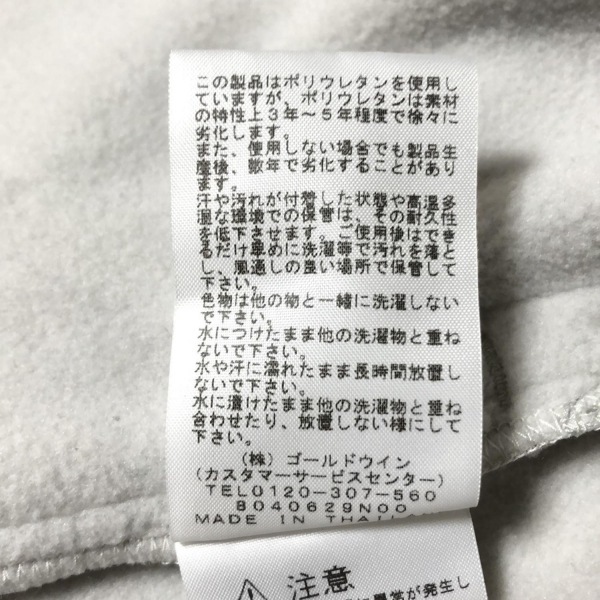 この製品はポリウレタンを使用し
ていますが、ポリウレタンは素材
の特性上3年〜5年程度で徐々に
劣化します。
また、使用しない場合でも製品生
産後、数年で劣化することがあり
ます。
汗や汚れが付着した状態や高温多
湿な環境での保管は、その耐久性
を低下させます。ご使用後はでき
るだけ早めに洗濯等で汚れを落と
し、風通しの良い場所で保管して
下さい。
色物は他の物と一緒に洗濯しない
で下さい。
水につけたまま他の洗濯物と重ね
ないで下さい。
水や汗に濡れたまま長時間放置し
ないで下さい。
水に漬けたまま他の洗濯物と重ね
合わせたり、放置しない様にして
下さい。
(株) ゴールドウイン
(カスタマーサービスセンター)
TEL0120-307-560
B040629N00
MADE IN THAILAND
注意
異常が発生し